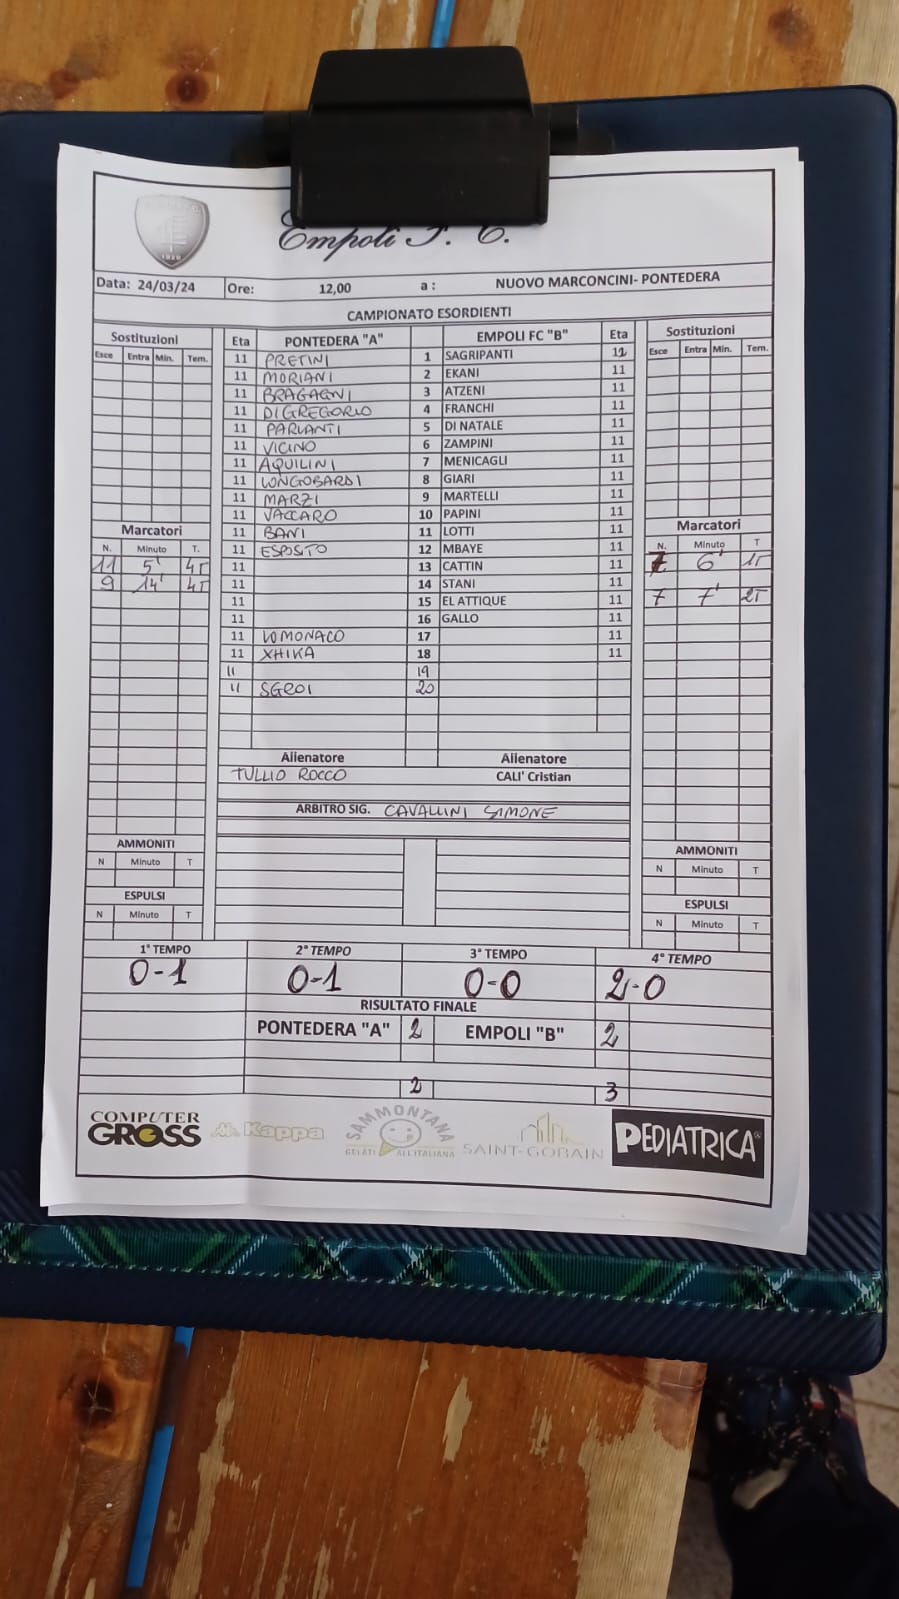 Empoli F. C.
Data: 24/03/24 Ore: 12,00 a : NUOVO MARCONCINI- PONTEDERA
CAMPIONATO ESORDIENTI
Sostituzioni Eta PONTEDERA "A" EMPOLI FC "B" Eta Sostituzioni
Esce Entra Min. Tem. 11 PRETINI 1 SAGRIPANTI 12 Esce Entra Min. Tem.
11 MORIANI 2 EKANI 11
11 BRAGAGNI 3 ATZENI 11
11 DI GREGORIO 4 FRANCHI 11
11 PARLANTI 5 DI NATALE 11
11 VICINO 6 ZAMPINI 11
11 AQUILINI 7 MENICAGLI 11
11 LONGOBARDI 8 GIARI 11
11 MARZI 9 MARTELLI 11
11 VACCARO 10 PAPINI 11
Marcatori 11 BANI 11 LOTTI 11 Marcatori
N. Minuto T. 11 ESPOSITO 12 MBAYE 11 N. Minuto T
11 5' 4T 11 13 CATTIN 11 7 6' 1T
9 14' 4T 11 14 STANI 11
11 15 EL ATTIQUE 11 7 7' 2T
11 16 GALLO 11
11 LOMONACO 17 11
11 XHIKA 18 11
11 19
11 SGROI 20
Allenatore Allenatore
TULLIO ROCCO CALI' Cristian
ARBITRO SIG. CAVALLINI SIMONE
AMMONITI AMMONITI
N Minuto T N Minuto T
ESPULSI ESPULSI
N Minuto T N Minuto T
1° TEMPO 2° TEMPO 3° TEMPO 4° TEMPO
0-1 0-1 0-0 2-0
RISULTATO FINALE
PONTEDERA "A" 2 EMPOLI "B" 2
2 3
COMPUTER GROSS Kappa SAMMONTANA GELATI ALL'ITALIANA SAINT-GOBAIN PEDIATRICA